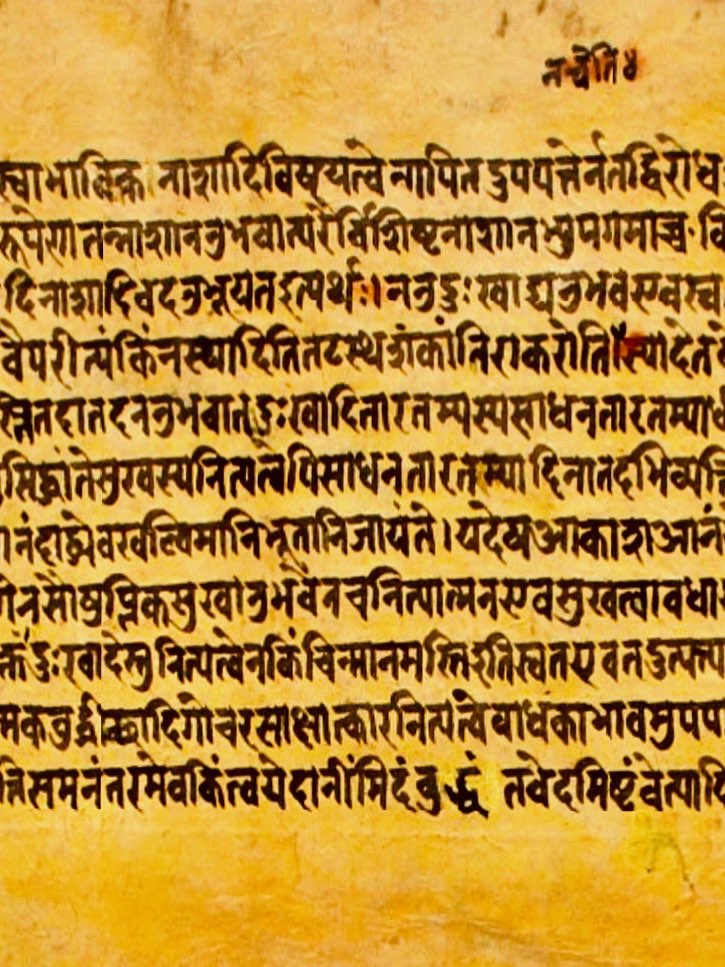 नन्वेति४
स्वाभाविकनाशादिविषयत्वेनापितदुपपत्तेर्नतद्विरोध
रूपेणातन्नाशाननुभवात्परैर्विशिष्टनाशानभ्युपगमाच्च
दिनाशादिवदनुभूयतइत्यर्थः।ननुदुःखाद्यनुभवएवस्व
वैपरीत्यंकिंनस्यादितितटस्थशंकांनिराकरोति॥स्यादेत
तदातदननुभवात्दुःखादितारतम्यस्यसाधनतारतम्या
सिद्धांतेसुखस्यनित्यत्वेपिसाधनतारतम्यादिनातदभिव्यक्ति
नंदाद्ध्येवखल्विमानिभूतानिजायंते।यदेषआकाशआनं
नसौषुप्तिकसुखानुभवेनचनित्यात्मनएवसुखत्वावधा
दुःखादेस्तुनित्यत्वेनकिंचिन्मानमस्तिइतिस्वतएवतदुत्पत्त्या
त्मकवुद्धीच्छादिगोचरसाक्षात्कारनित्यत्वेवाधकाभावमुपपा
त्तिसमनंतरमेवकिंत्वयेदानींमिदंवुद्धं तवेदमिष्टंवेत्यादि